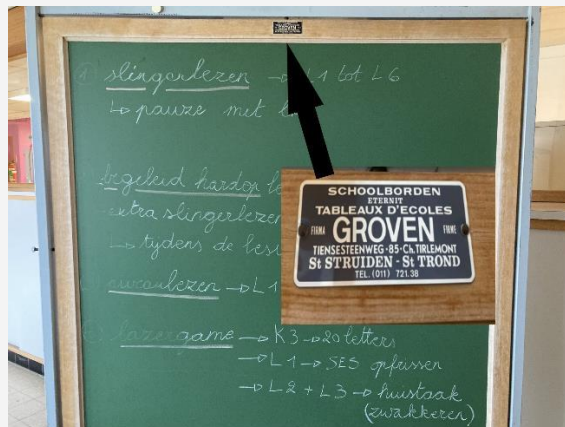 GROVEN
① slingerlezen → L1 tot L6
↳ pauze met
begeleid hardop le
extra slingerlezen
↳ tijdens de
lezen → L1
lazergame → K3 → 20 letters
→ L1 → SES opfrissen
→ L2 + L3 → huistaak
(zwakkeren)
SCHOOLBORDEN
ETERNIT
TABLEAUX D'ECOLES
FIRMA GROVEN FIRME
TIENSESTEENWEG·85·Ch.TIRLEMONT
St STRUIDEN - St TROND
TEL.(011) 721.38